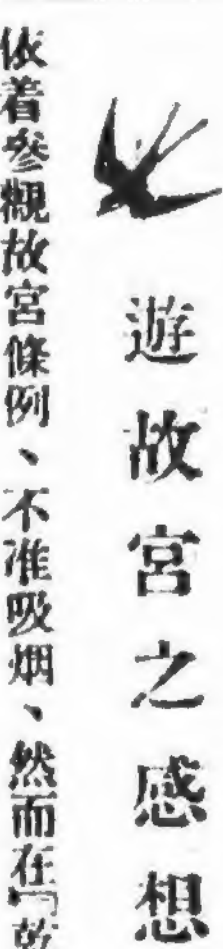 遊故宮之感想
依着參觀故宮條例、不准吸烟、然而在「乾